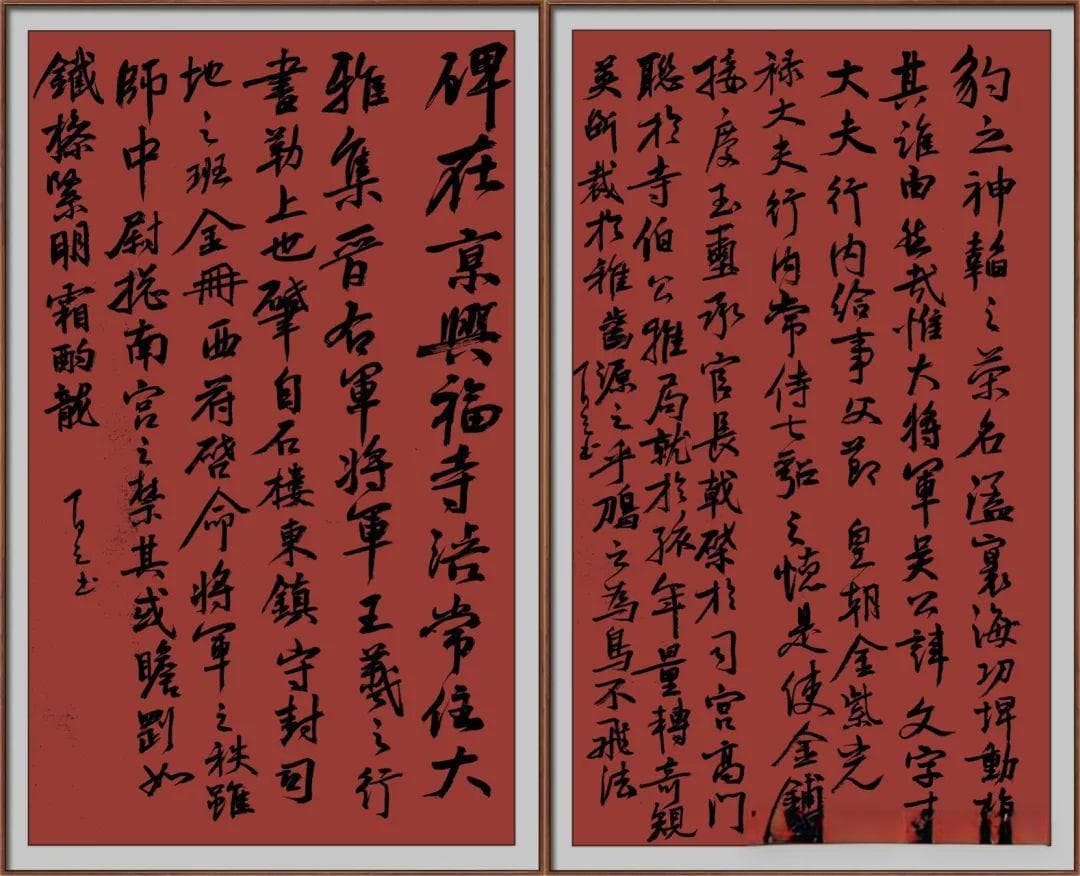 碑在京興福寺涪常住大
雅集晉右軍將軍王羲之行
書勒上也肇自石樓東鎮守封司
地之班金冊西符啓命將軍之秩雖
師中尉揔南宮之禁其或瞻劉如
鐵操繄明霜酌龍
豹之神韜之榮名溢寰海功埤動植
其誰由然哉惟大將軍吴公諱文字才
大夫行内給事父節皇朝金紫光
禄大夫行内常侍七貂之是使金鋪
接慶玉璽承官長戟磔於司宫高門
聡於寺伯公雅局就於孩年量轉奇規
英斷裁於稚齒源之乎之為鳥不飛法